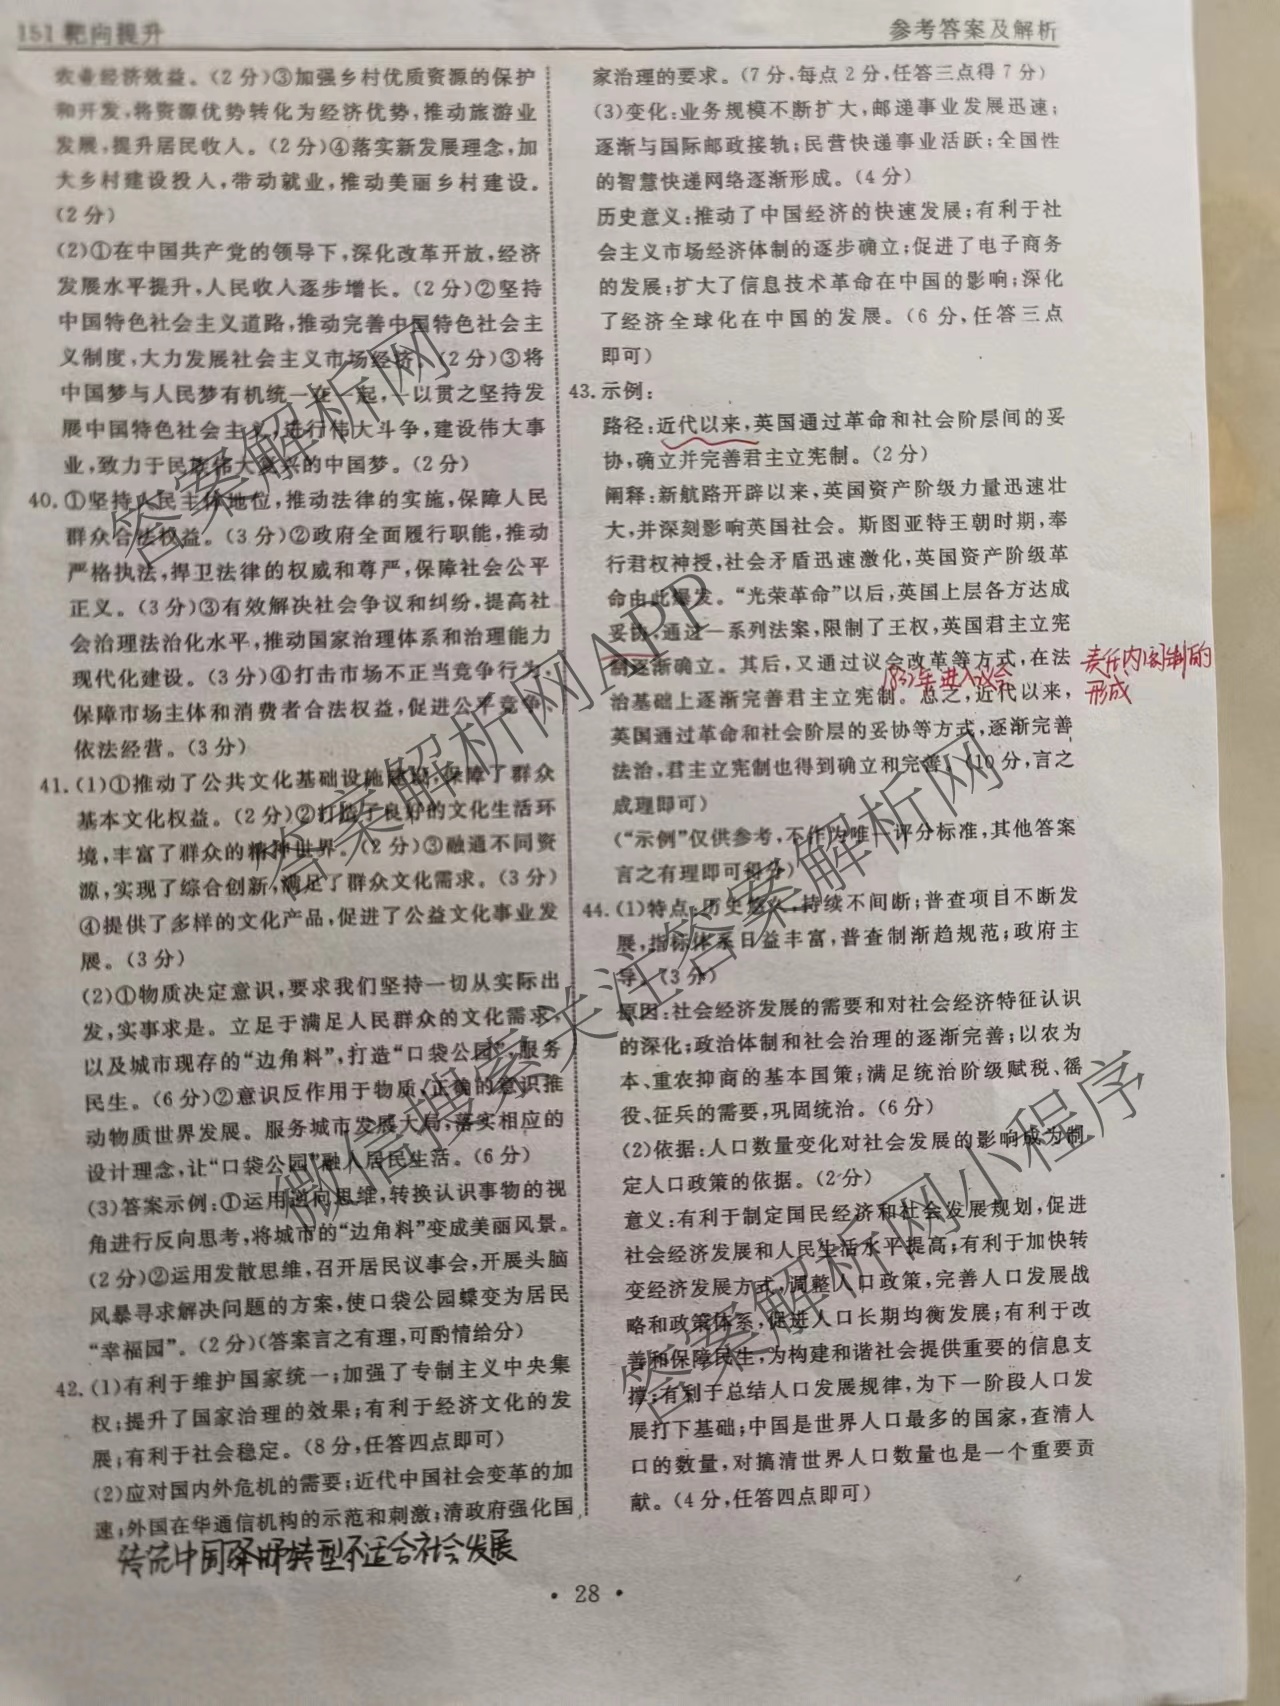 151 靶向提升
参考答案及解析
农业经济效益。(2 分)③加强乡村优质资源的保护
和开发,将资源优势转化为经济优势,推动旅游业
发展,提升居民收入。(2 分)④落实新发展理念,加
大乡村建设投入,带动就业,推动美丽乡村建设。
(2 分)
(2)①在中国共产党的领导下,深化改革开放,经济
发展水平提升,人民收入逐步增长。(2 分)②坚持
中国特色社会主义道路,推动完善中国特色社会主
义制度,大力发展社会主义市场经济。(2 分)③将
中国梦与人民梦有机统一在一起,一以贯之坚持发
展中国特色社会主义,进行伟大斗争,建设伟大事
业,致力于民族伟大复兴的中国梦。(2 分)
40.①坚持人民主体地位,推动法律的实施,保障人民
群众合法权益。(3 分)②政府全面履行职能,推动
严格执法,捍卫法律的权威和尊严,保障社会公平
正义。(3 分)③有效解决社会争议和纠纷,提高社
会治理法治化水平,推动国家治理体系和治理能力
现代化建设。(3 分)④打击市场不正当竞争行为,
保障市场主体和消费者合法权益,促进公平竞争、
依法经营。(3 分)
41.(1)①推动了公共文化基础设施建设,保障了群众
基本文化权益。(2 分)②打造了良好的文化生活环
境,丰富了群众的精神世界。(2 分)③融通不同资
源,实现了综合创新,满足了群众文化需求。(3 分)
④提供了多样的文化产品,促进了公益文化事业发
展。(3 分)
(2)①物质决定意识,要求我们坚持一切从实际出
发,实事求是。立足于满足人民群众的文化需求,
以及城市现存的“边角料”,打造“口袋公园”,服务
民生。(6 分)②意识反作用于物质,正确的意识推
动物质世界发展。服务城市发展大局,落实相应的
设计理念,让“口袋公园”融入居民生活。(6 分)
(3)答案示例:①运用逆向思维,转换认识事物的视
角进行反向思考,将城市的“边角料”变成美丽风景。
(2 分)②运用发散思维,召开居民议事会,开展头脑
风暴寻求解决问题的方案,使口袋公园蝶变为居民
“幸福园”。(2 分)(答案言之有理,可酌情给分)
42.(1)有利于维护国家统一;加强了专制主义中央集
权;提升了国家治理的效果;有利于经济文化的发
展;有利于社会稳定。(8 分,任答四点即可)
(2)应对国内外危机的需要;近代中国社会变革的加
速;外国在华通信机构的示范和刺激;清政府强化国
传统中国驿邮转型不适合社会发展
家治理的要求。(7 分,每点 2 分,任答三点得 7 分)
(3)变化:业务规模不断扩大,邮递事业发展迅速;
逐渐与国际邮政接轨;民营快递事业活跃;全国性
的智慧快递网络逐渐形成。(4 分)
历史意义:推动了中国经济的快速发展;有利于社
会主义市场经济体制的逐步确立;促进了电子商务
的发展;扩大了信息技术革命在中国的影响;深化
了经济全球化在中国的发展。(6 分,任答三点
即可)
43.示例:
路径:近代以来,英国通过革命和社会阶层间的妥
协,确立并完善君主立宪制。(2 分)
阐释:新航路开辟以来,英国资产阶级力量迅速壮
大,并深刻影响英国社会。斯图亚特王朝时期,奉
行君权神授,社会矛盾迅速激化,英国资产阶级革
命由此爆发。“光荣革命”以后,英国上层各方达成
妥协,通过一系列法案,限制了王权,英国君主立宪
制逐渐确立。其后,又通过议会改革等方式,在法
责任内阁制的
形成
1832年进入议会
治基础上逐渐完善君主立宪制。总之,近代以来,
英国通过革命和社会阶层的妥协等方式,逐渐完善
法治,君主立宪制也得到确立和完善。(10 分,言之
成理即可)
(“示例”仅供参考,不作为唯一评分标准,其他答案
言之有理即可得分)
44.(1)特点:历史悠久,持续不间断;普查项目不断发
展,指标体系日益丰富,普查制渐趋规范;政府主
导。(3 分)
原因:社会经济发展的需要和对社会经济特征认识
的深化;政治体制和社会治理的逐渐完善;以农为
本、重农抑商的基本国策;满足统治阶级赋税、徭
役、征兵的需要,巩固统治。(6 分)
(2)依据:人口数量变化对社会发展的影响成为制
定人口政策的依据。(2 分)
意义:有利于制定国民经济和社会发展规划,促进
社会经济发展和人民生活水平提高;有利于加快转
变经济发展方式,调整人口政策,完善人口发展战
略和政策体系,促进人口长期均衡发展;有利于改
善和保障民生,为构建和谐社会提供重要的信息支
撑;有利于总结人口发展规律,为下一阶段人口发
展打下基础;中国是世界人口最多的国家,查清人
口的数量,对搞清世界人口数量也是一个重要贡
献。(4 分,任答四点即可)
• 28 •
答案解析网
答案解析网APP
微信搜索关注答案解析网
答案解析网小程序